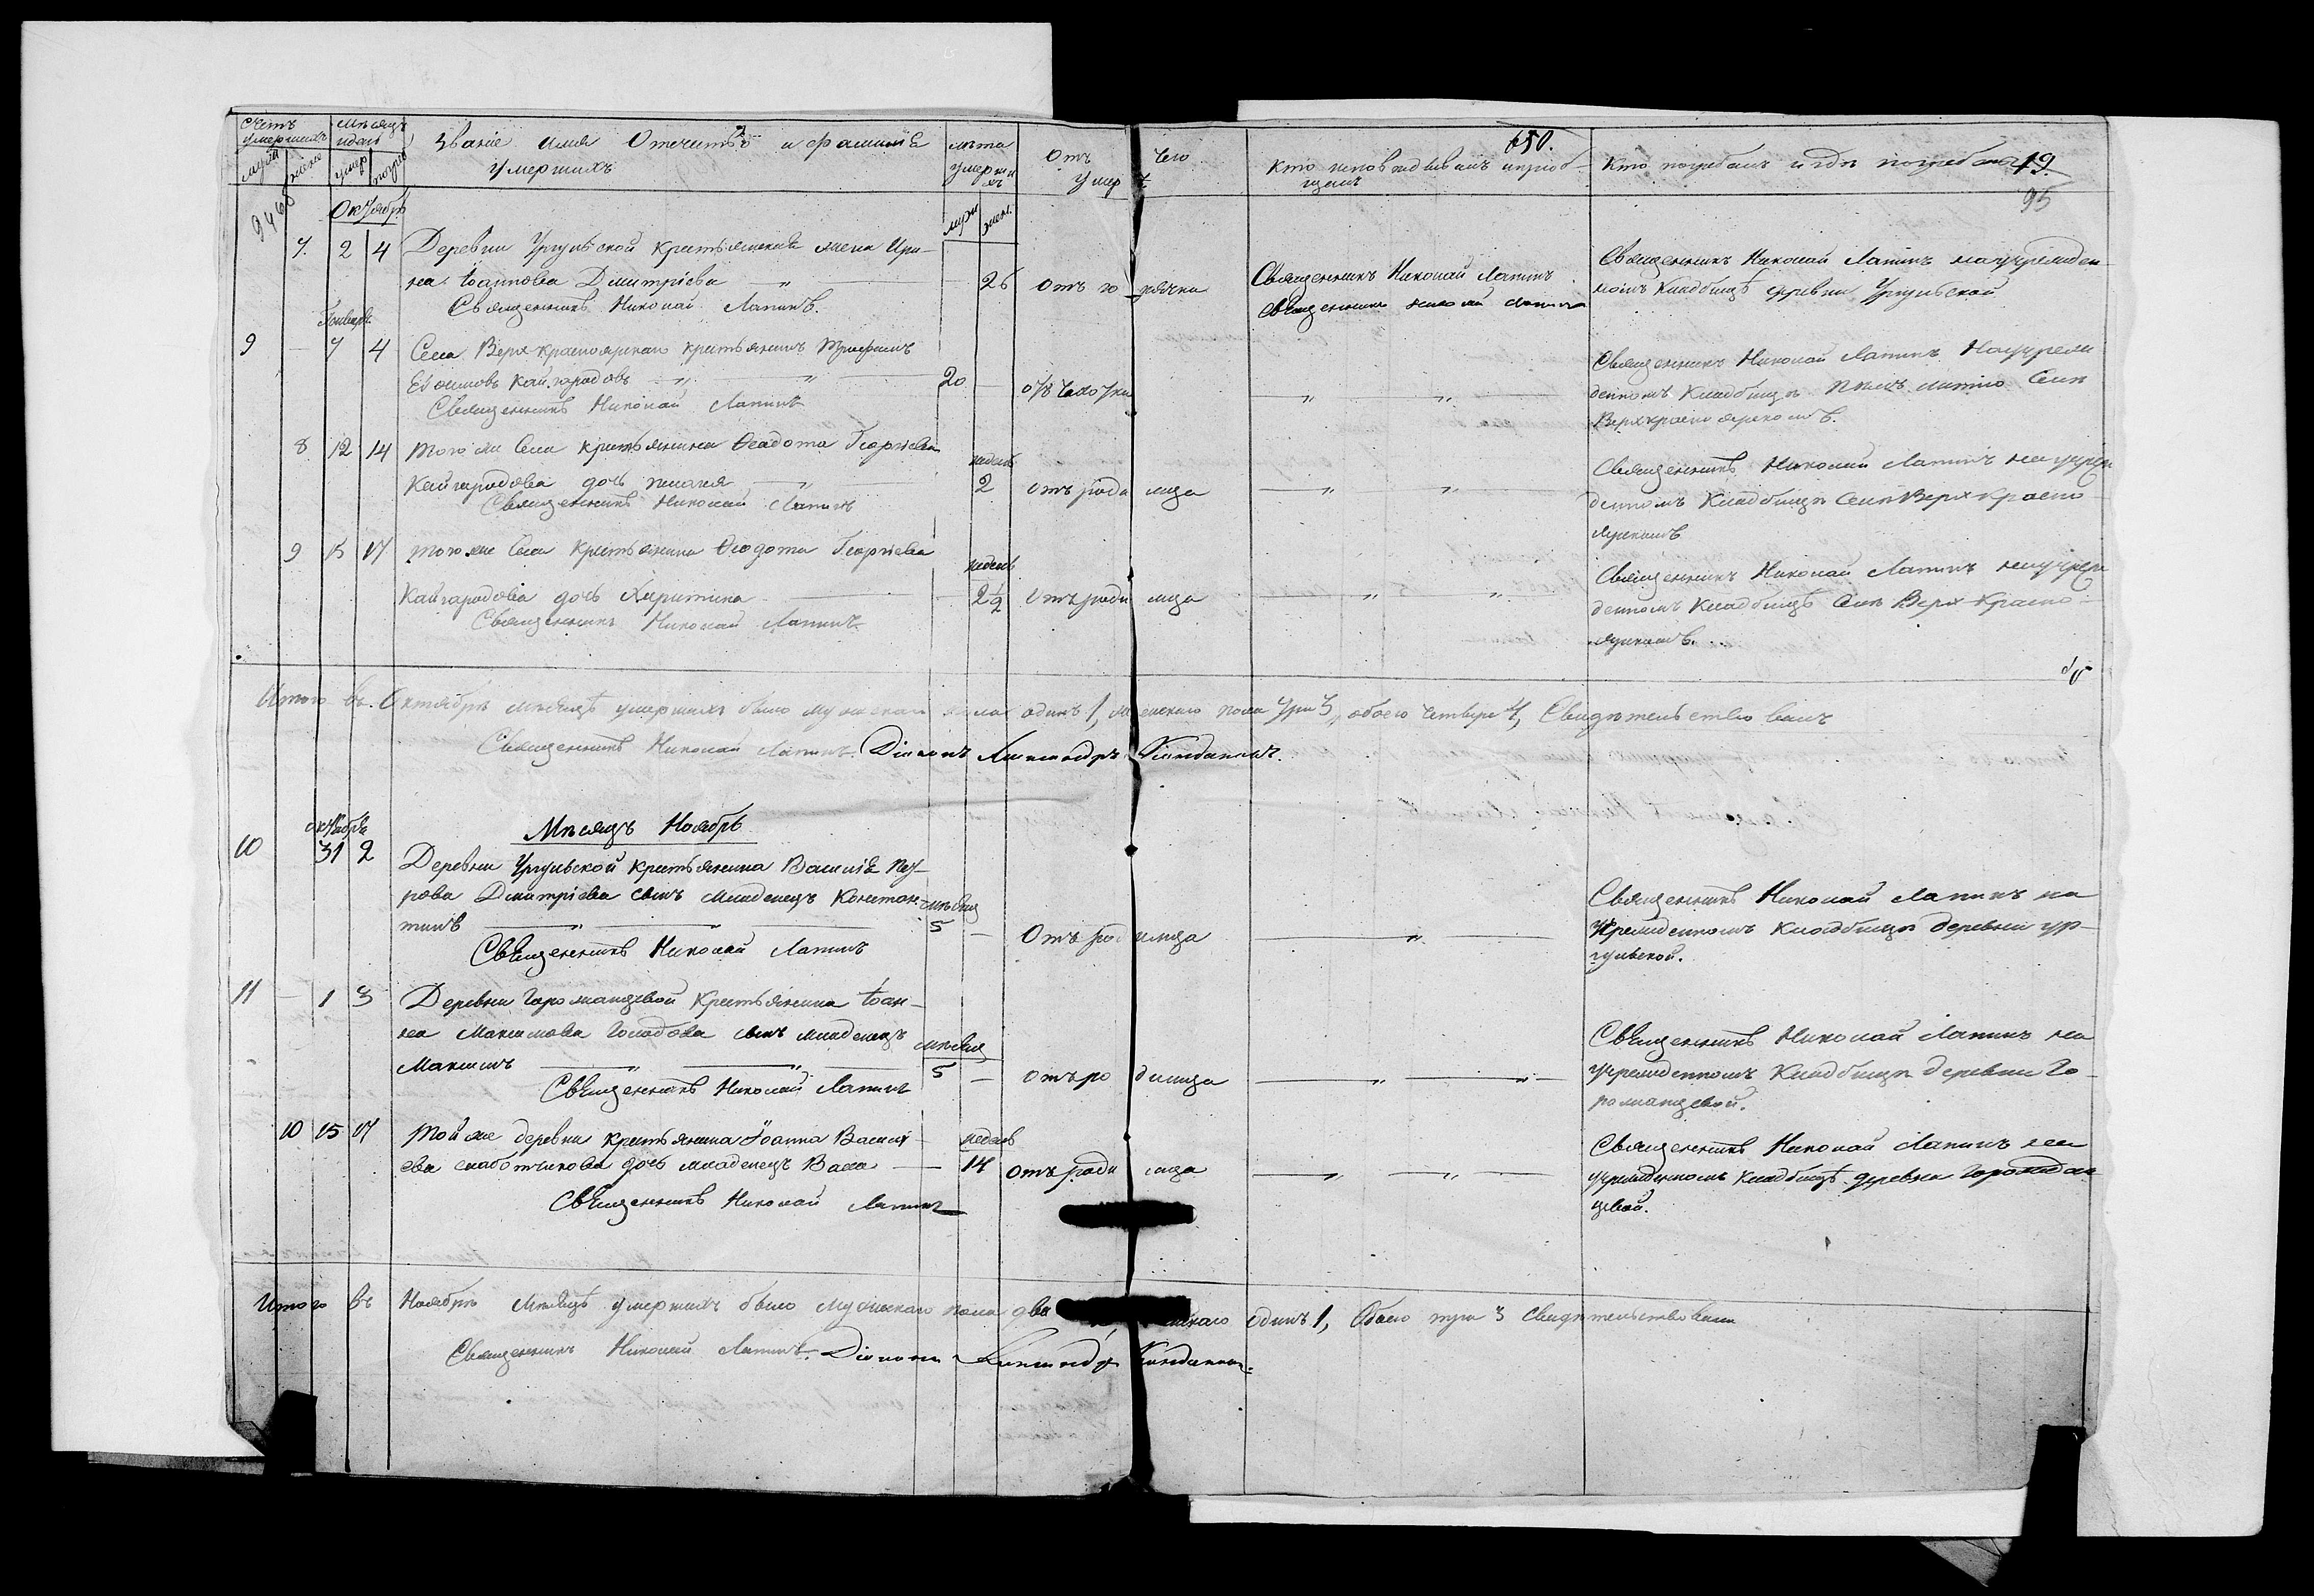 650.
19.
95
Счетъ умершихъ
Мѣсяцъ и день
Званіе имя Отечество и фамилія умершихъ
лѣта умершихъ
Отъ чего умер
Кто исповѣдывалъ и пріобщалъ
Кто погребалъ и гдѣ погребены
муж. жен.
Октябрь
7. 2 4 Деревни Ургульской крестьянская жена Ири-
на Іоаннова Димитріева 26 отъ горячки
Священникъ Николай Лапинъ.
Священникъ Николай Лапинъ
Священникъ Николай Лапинъ на учрежден-
номъ Кладбищѣ деревни Ургульской
9 — 7 4 Села Верхкрасноярскаго крестьянинъ Трифонъ
Кайгородовъ 20 — отъ чахотки
Священникъ Николай Лапинъ
Священникъ Николай Лапинъ На учреж
денномъ Кладбищѣ Села
Верхкрасноярскомъ.
8 12 14 того же Села крестьянина Ѳеодота Георгіева
Кайгородова дочь недель 2 отъ родимца
Священникъ Николай Лапинъ
Священникъ Николай Лапинъ на учреж
денномъ Кладбищѣ Села Верхкрасно-
ярскомъ
9 15 17 того же Села крестьянина Ѳеодота Георгіева
Кайгородова дочь Харитина недель 2½ Отъ родимца
Священникъ Николай Лапинъ
Священникъ Николай Лапинъ на учреж
денномъ Кладбищѣ Села Верхкрасно-
ярскомъ.
Итого въ Октябрѣ мѣсяцѣ умершихъ было мужескаго пола одинъ 1, женскаго пола три 3, обоего четыре 4, Свидѣтельствовалъ
Священникъ Николай Лапинъ. Діаконъ Александръ
Мѣсяцъ Ноябрь
Октября
10 31 2 Деревни Ургульской крестьянина Василія Пет-
рова Димитріева сынъ младенецъ Констан-
тинъ мѣсяц 5 — Отъ родимца
Священникъ Николай Лапинъ
Священникъ Николай Лапинъ на
учрежденномъ Кладбищѣ деревни Ур-
гульской.
11 — 1 3 Деревни Гороманцевой Крестьянина Іоан-
на Максимова сынъ младенецъ
Максимъ мѣсяц 5 — отъ родимца
Священникъ Николай Лапинъ
Священникъ Николай Лапинъ на
учрежденномъ Кладбищѣ деревни Го-
романцевой.
10 15 17 Той же деревни крестьянина Іоанна Василі-
ева Слаботчикова дочь младенецъ недель 14 отъ родимца
Священникъ Николай Лапинъ
Священникъ Николай Лапинъ на
учрежденномъ Кладбищѣ деревни
цевой.
Итого въ Ноябрѣ мѣсяцѣ умершихъ было мужескаго пола два одинъ 1, Обоего три 3 Свидѣтельствовали
Священникъ Николай Лапинъ. Діаконъ Александръ